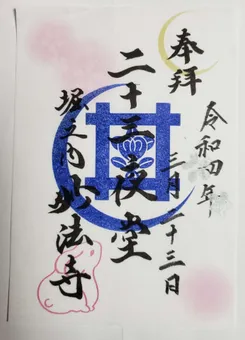 奉拝
令和四年
三月二十三日
二十三夜堂
堀之内 妙法寺